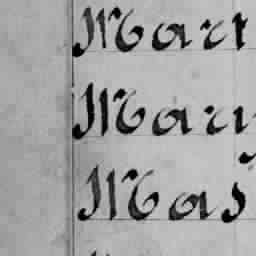 Mart
Mary
Mas